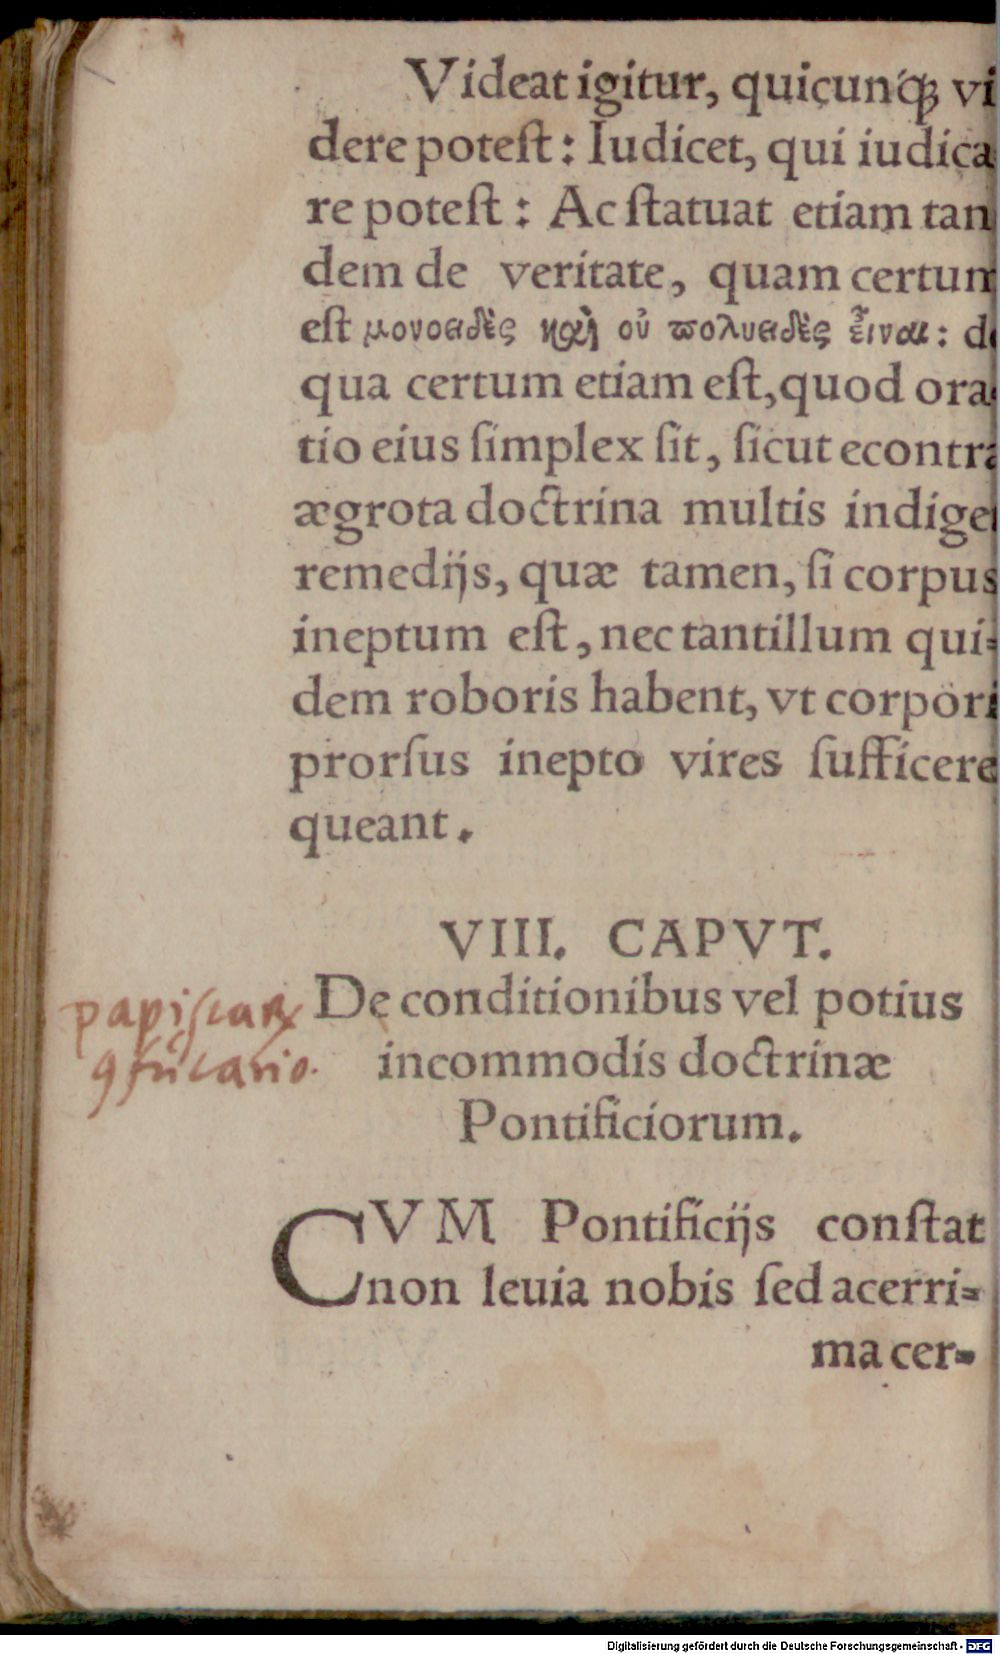 Videat igitur, quicunq́ꝫ vi
dere poteſt : Iudicet, qui iudica
re poteſt : Ac ſtatuat etiam tan
dem de veritate, quam certum
eſt μονοειδὲς καὶ οὐ πολυειδὲς εἶναι : de
qua certum etiam eſt, quod ora
tio eius ſimplex ſit, ſicut econtra
ægrota doctrina multis indiget
remedijs, quæ tamen, ſi corpus
ineptum eſt, nec tantillum qui-
dem roboris habent, vt corpori
prorſus inepto vires ſufficere
queant.
VIII. CAPVT.
De conditionibus vel potius
incommodis doctrinæ
Pontificiorum.
CVM Pontificijs conſtat
non leuia nobis ſed acerri-
ma cer-
Digitalisierung gefördert durch die Deutsche Forschungsgemeinschaft - DFG